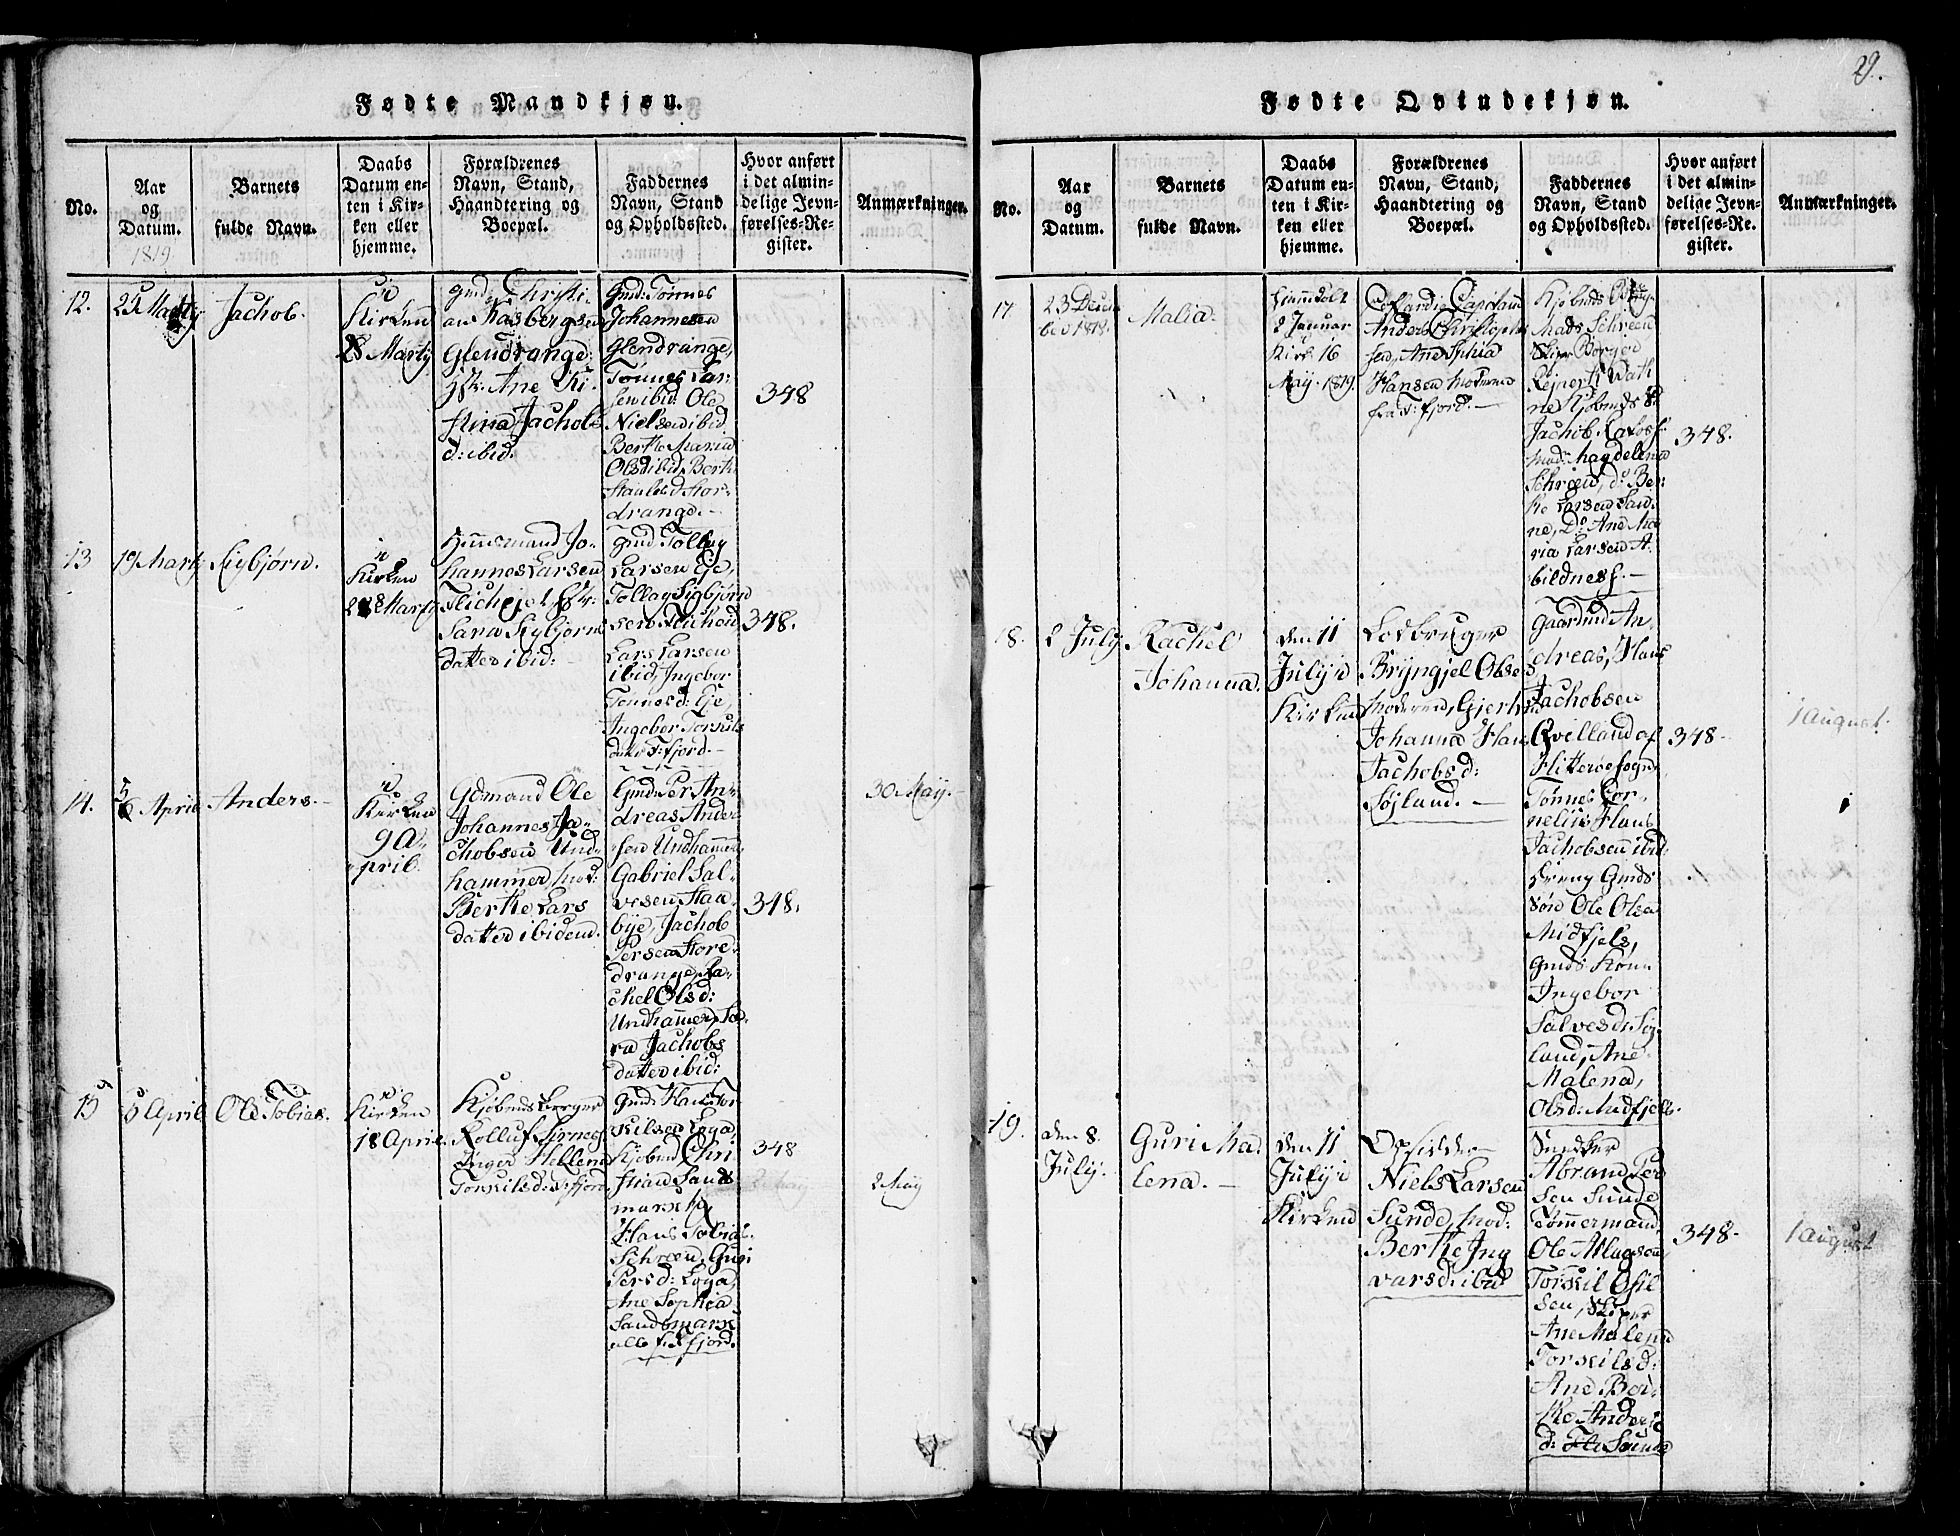 Fødte Mandkjøn.
No.
Aar
og
Datum.
1819
Barnets
fulde Navn.
Daabs
Datum en-
ten i Kir-
ken eller
hjemme.
Forældrenes
Navn, Stand,
Haandtering og
Boepæl.
Faddernes
Navn, Stand
og Opholdssted.
Hvor anført
i det almin-
delige Jevn-
førelses-Re-
gister.
Anmærkninger.
12.
Jachob.
Kirken
28 Marty
gmd: Christi-
an
Glendrange
Ane Ki-
stina Jachobs
d: ibid.
Gmd: Tønnes
Johannesen
Glendrange,
Tønnes Lar-
sen ibid Ole
Nielsen ibid
Berthe Maria
Olsd ibid, Berth
Stor-
drange.-
348
13
19 Marty
Sigbjørn.
Kirken
28 Marty
Huusmand Jo-
hannes Larsen
Sara Sigbjørns
datter ibid:
Gmd Tollag
Larsen Eje,
Tollag Sigbjørn
sen
Lars Larsen
ibid, Ingebor
Tønnesd: Eje,
Ingebor
datter F:fjord.-
348.
14.
5 April
Anders.-
Kirken
9 A-
pril.
Gdmand Ole
Johannes Ja-
chobsen Und-
hammer, Mod:
Berthe Lars
datter ibidem.
Gmd: Per An-
dreas Ander
sen Undhammer,
Gabriel Sal-
vesen Staa-
bye, Jachob
Persen Store-
drange, Ra-
chel Olsd:
Undhammer, Sa-
ra Jachobs
datter ibid:
348.
30 May.-
15
5 April
Ole Tobias.
Kirken
18 April.
Kjøbmd:
Inger Hellene
Torkilsd:
Gmd: Hans Tor
kilsen Loga,
Kjøbmd Chri
stian Sand
mark
Hans Tobias
Schrøen, Guri
Persd: Loga,
Ane Sophia
Sandmark
alle f: F:fjord.
348
2 May
Fødte Qvindekjøn.
29.
No.
Aar
og
Datum.
Barnets
fulde Navn.
Daabs
Datum en-
ten i Kir-
ken eller
hjemme.
Forældrenes
Navn, Stand,
Haandtering og
Boepæl.
Faddernes
Navn, Stand
og Opholdssted.
Hvor anført
i det almin-
delige Jevn-
førelses-Re-
gister.
Anmærkninger.
17.
23 Decem
ber 1818.
Malia.
Hiemdøbt
2 Januar
Kirk: 16
May. 1819.
Capitain
Anders Christophe
sen, Ane Sophia
Hansen Moderen
fra F:fjord.-
Mads Schrøen
Jachob
Magdelena
Schrøen, d: Ber-
the Larsen San-
ne, Do Ane Ma-
ria Larsen A-
bildnes f.-
348.
18.
2 July
Rachel
Johanna.
den 11
July i
Kirken
Lodbruger
Bryngjel Olsen
Moderen, Gjerhru
Johanna Hans
Jachobsd:
Søjland.-
Gaardmd An,
dreas, Hans
Jachobsen
Qvelland af
Hitteroe sogn,
Tønnes Cor-
nelius Hans
Jachobsen ibid:
Dreng Gmds
søn Ole Olsen
Midfjels,
Gmds Kone
Ingebor
Salvesd: Søj-
land, Ane
Malena,
Olsd: Midfjells.
348-
1 August.
19.
den 8.
July.
Guri Ma
lena.-
den 11
July i
Kirken
Opsidder
Niels Larsen
Sunde, Mod:
Berthe Ing
varsd: ibid
Snedker
Abram Per
sen Sunde
Tømmermand
Ole Aslagsen,
Torkil Osul
sen,
Ane Malena
Torkilsd:
Ane Ber-
the Anders
d: Sunde
348-
1 August